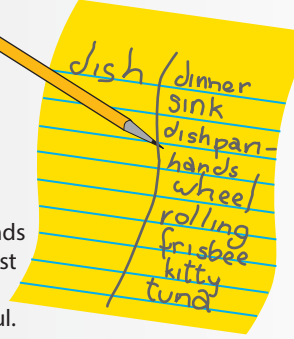 dish
dinner
sink
dishpan-
hands
wheel
rolling
frisbee
kitty
tuna
nds
st
ul.